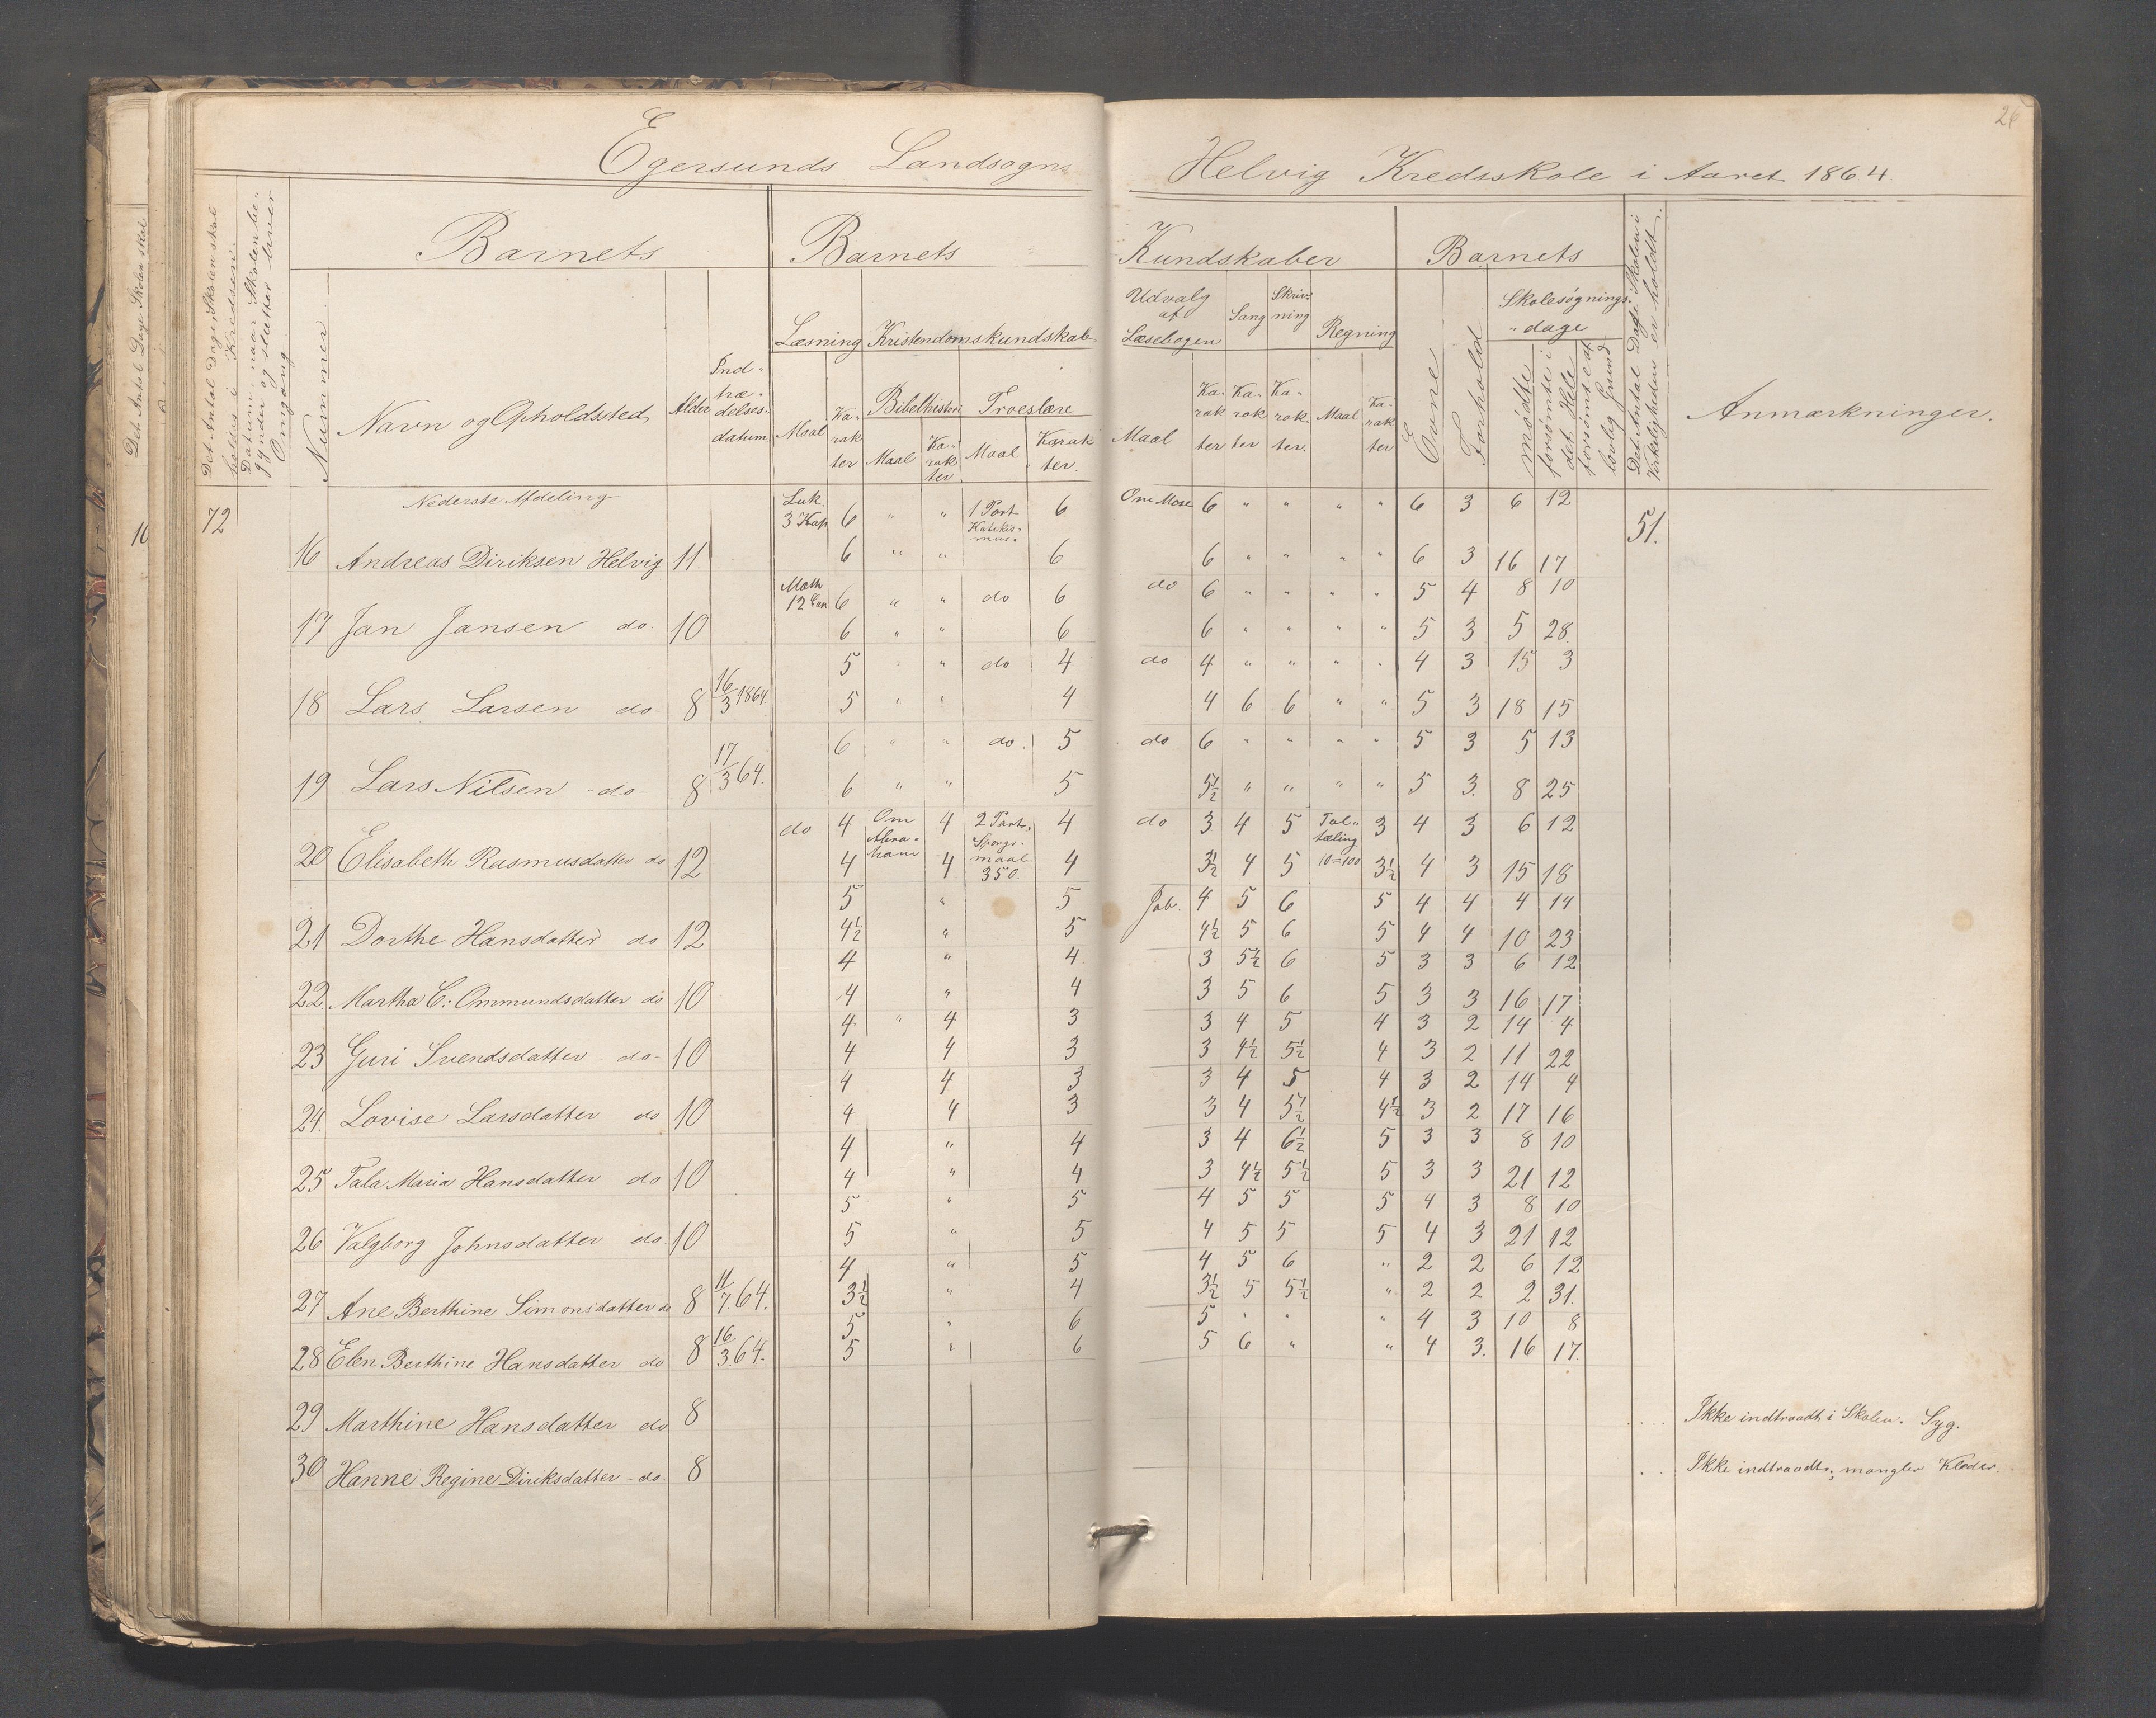 26
Egersunds Landsogn
Helvig Kredsskole i Aaret 1864.
Det Antal Dage Skolen skal
Det Antal Dage Skolen skal
holdes i Kredsen.
Datum, naar Skolen be-
gynder og slutter hver
Omgang
Nummer
Barnets
Barnets
Kundskaber
Barnets
Navn og Opholdsted
Alder
Ind-
træ-
delses-
datum
Læsning
Kristendomskundskab
Maal
Ka-
rak
ter
Bibelhistori
Troeslære
Maal
Ka-
rak
ter
Maal
Karak
ter.
Udvalg
af
Læsebogen
Sang
Skriv-
ning
Regning
Maal
Ka-
rak
ter
Ka-
rak
ter
Ka-
rak.
ter.
Maal
Ka-
rak
ter
Evne
Forhold
Skolesøgnings-
dage
mødte
forsømte i
det Hele
forsømte af
lovlig Grund
Det Antal Dage Skolen i
Virkeligheden er holdt.
Anmærkninger.
10
72
Nederste Afdeling
Luk. 3 Kap. 6 " " 1 Part Katekis-mus. 6 Om Mose 6 " " " " 6 3 6 12 51.
16 Andreas Diriksen Helvig 11. 6 " " 6 6 " " " " 6 3 16 17
Math 12 Cap 6 " " do 6 do 6 " " " " 5 4 8 10
17 Jan Jansen do 10 6 " " 6 6 " " " " 5 3 5 28.
5 " " do 4 do 4 " " " " 4 3 15 3
18 Lars Larsen do 8 16/3 1864. 5 " " 4 4 6 6 " " 5 3 18 15
6 " " do. 5 do 6 " " " " 5 3 5 13
19 Lars Nilsen - do - 8 17/3 64. 6 " " 5 5½ " " " " 5 3. 8 25
do 4 Om Abra-ham 4 2 Part. Spørgs-maal 350. 4 do 3 4 5 Tal-tæling 10=100 3 4 3 6 12
20 Elisabeth Rasmusdatter do 12 4 4 4 3½ 4 5 3½ 4 3 15 18
5 " 5 Jab. 4 5 6 5 4 4 4 14
21 Dorthe Hansdatter do 12 4½ " 5 4½ 5 6 5 4 4 10 23
4 " 4 3 5½ 6 5 3 3 6 12
22. Martha C: Ommundsdatter do 10 4 " 4 3 5 6 5 3 3 16 17
4 " 4 3 3 4 5 4 3 2 14 4
23 Guri Svendsdatter do- 10 4 4 3 3 4½ 5½ 4 3 2 11 22
4 4 3 3 4 5 4 3 2 14 4
24. Lovise Larsdatter do 10 4 4 3 3 4 5½ 4½ 3 2 17 16
4 " 4 3 4 6½ 5 3 3 8 10
25 Tala Maria Hansdatter do 10 4 " 4 3 4½ 5½ 5 3 3 21 12
5 " 5 4 5 5 5 4 3 8 10
26 Valgborg Johnsdatter do 10 5 " 5 4 5 5 5 4 3 21 12
4 " 5 4 5 6 " 2 2 6 12
27 Ane Berthine Simonsdatter do 8 11/7. 64. 3½ " 4 3½ 5 5½ " 2 2 2 31.
5 " 6 5 " " " 4 3 10 8
28 Elen Berthine Hansdatter do 8 16/3. 64. 5 " 6 5 6 " " 4 3. 16 17.
29 Marthine Hansdatter do 8 Ikke indtraadt i Skolen. Syg.
30 Hanne Regine Diriksdatter - do. 8 Ikke indtraadt, mangler Klæder.